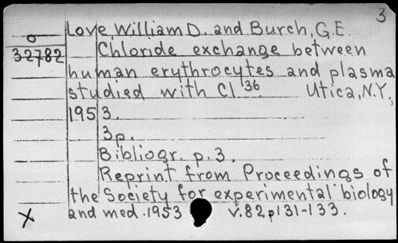 3
Love William D. and Burch, G.E.
o
32782
Chloride exchange between
human erythrocytes and plasma
studied with Cl36. Utica, N.Y.,
1953.
3p.
Bibliogr. p.3.
Reprint from Proceedings of
the Society for experimental biology
and med. 1953 v.82p131-133.
X